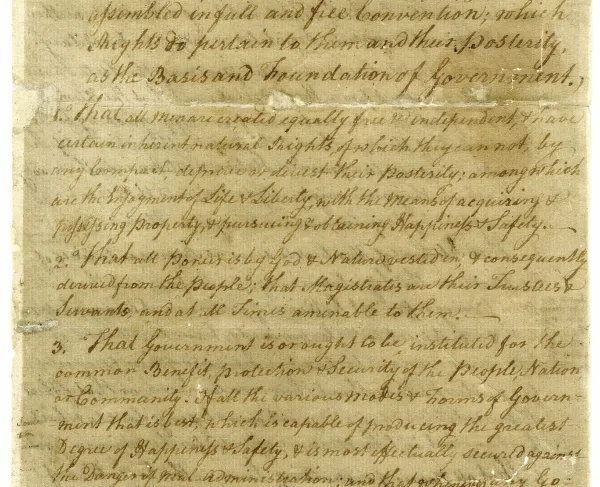 assembled in full and free Convention; which
Rights do pertain to them and their Posterity,
as the Basis and Foundation of Government.,
1.º That all Men are created equally free & independent, & have
certain inherent natural Rights, of which they can not, by
any Compact, deprive or devest their Posterity; among which
are the Enjoyment of Life & Liberty, with the Means of acquiring &
possessing Property, & pursueing & obtaining Happiness & Safety.
2.º That all Power is by God & Nature vested in, & consequently
derived from the People; that Magistrates are their Trustees &
Servants and at all Times amenable to them.
3. That Government is or ought to be, instituted for the
common Benefit, protection & Security of the People, Nation
or Community. Of all the various modes & Forms of Govern-
ment that is best, which is capable of producing the greatest
Degree of Happiness & Safety, & is most effectually secured against
the Danger of mal-administration; and that whenever any Go-